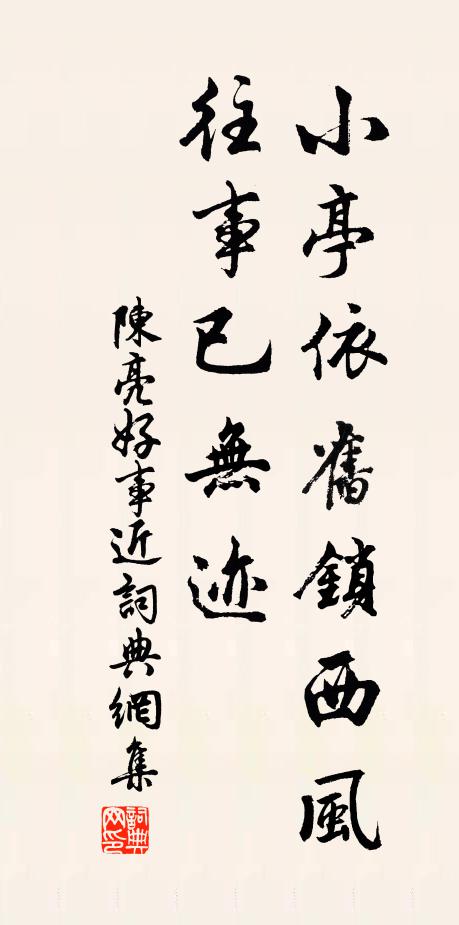 小亭依舊鎖西風
往事已無迹
陳亮好事近詞典網集
詞典網印